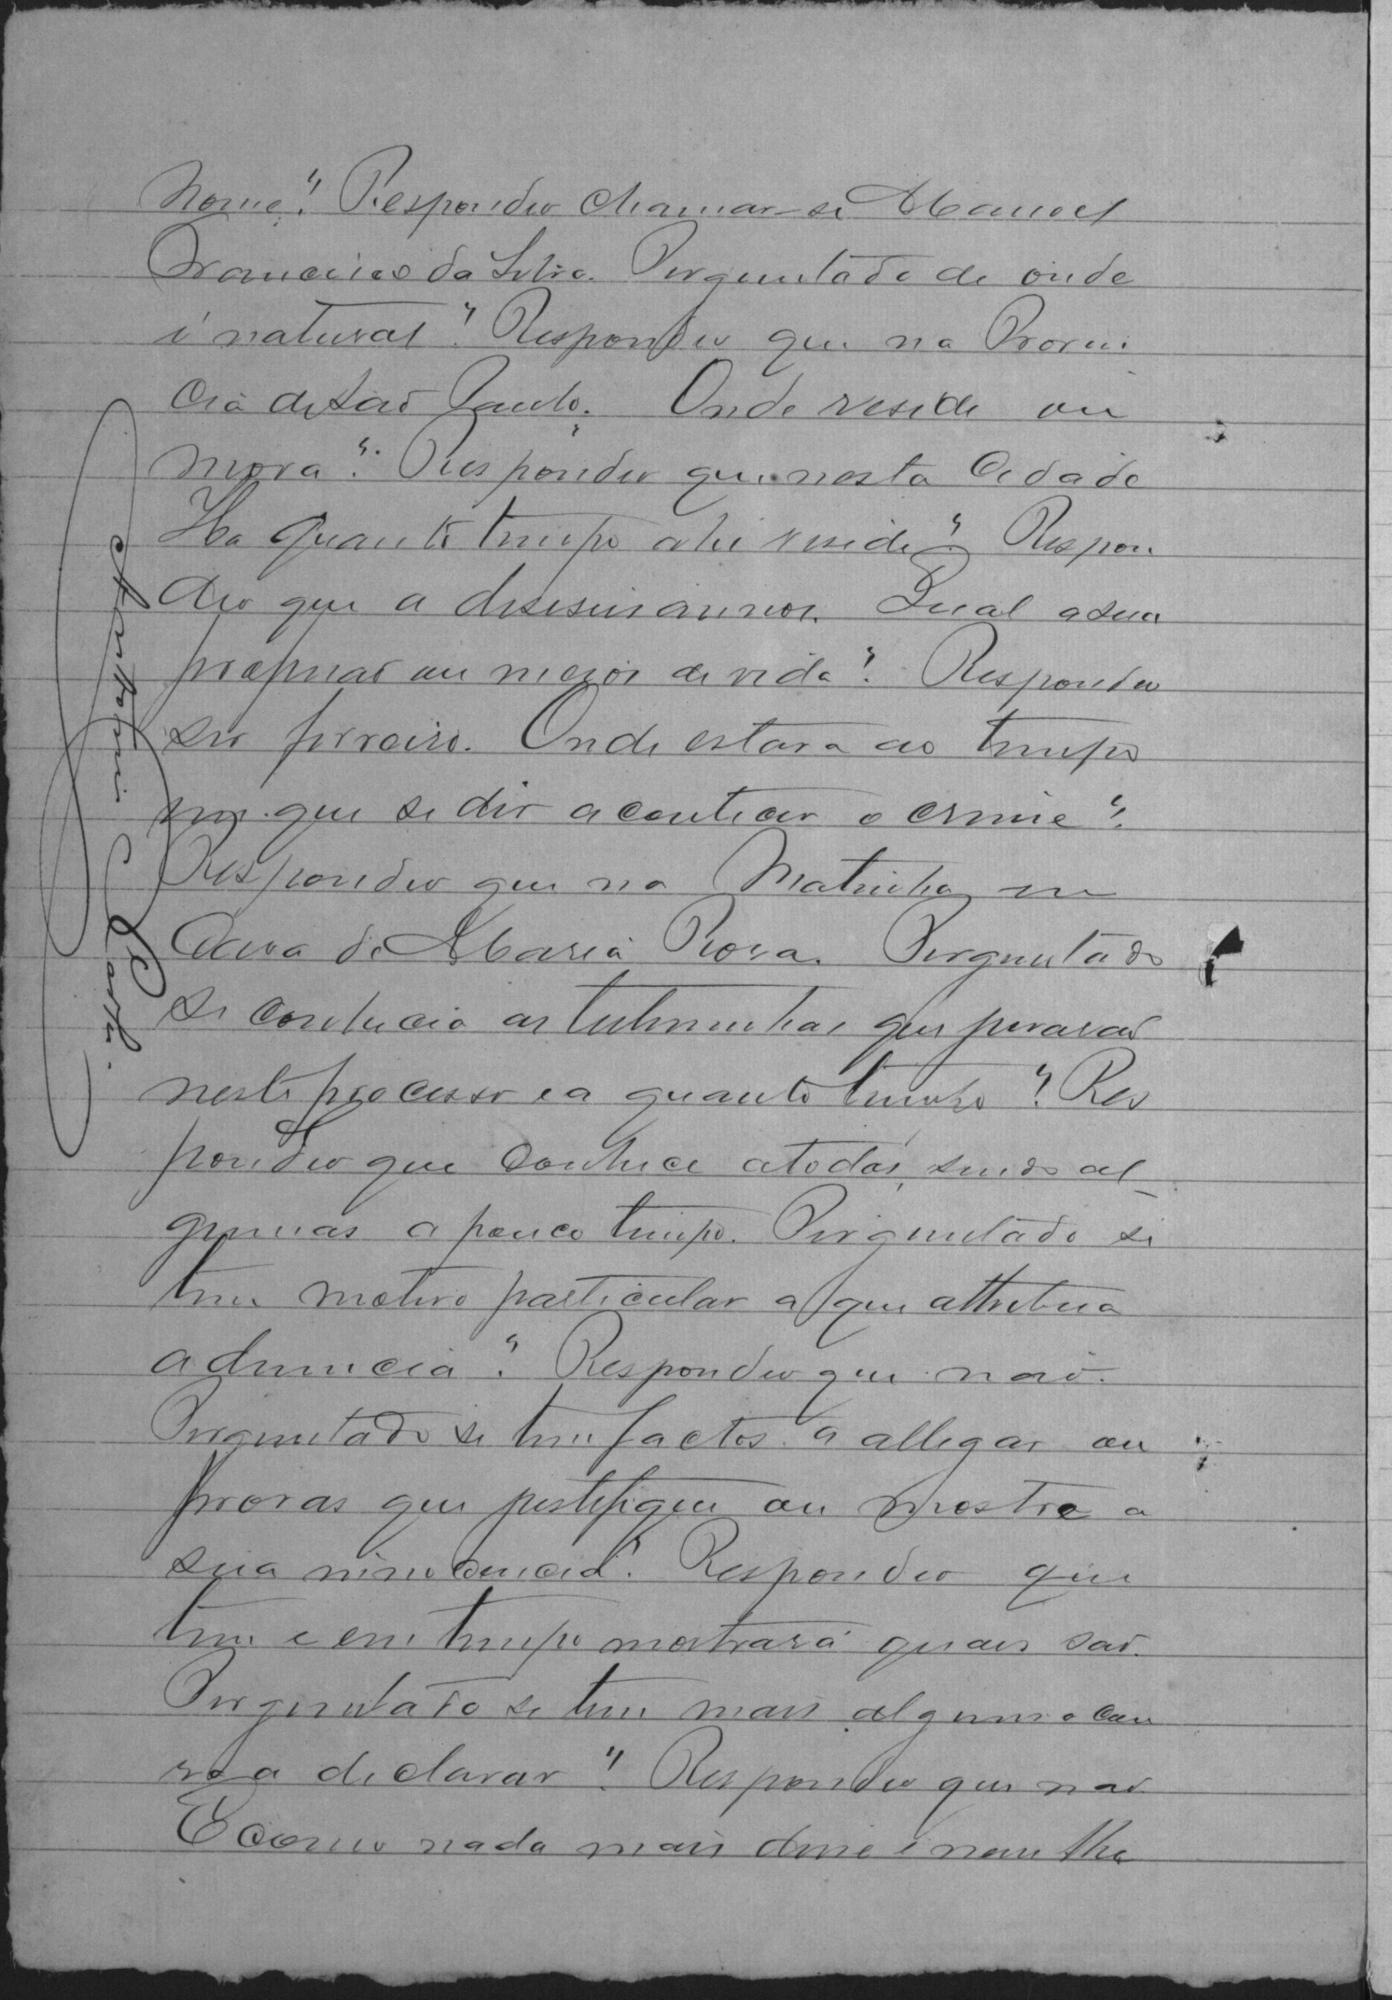 Nome? Respondeo chamar-se Manoel
Francisco da Silva. Perguntado de onde
é natural? Respondeo que na Provin
cia de São Paulo. Onde reside ou
mora? Respondeo que nesta Cidade
Ha quanto tempo ahi reside? Respon
deo que a deseseis annos. Qual a sua
profissão ou meios de vida? Respondeo
ser ferreiro. Onde estava ao tempo
em que se diz acontecer o crime?
Respondeo que na Matinha em
Casa de Maria Rosa. Perguntado
se conhecia as testemunhas que jurarão
neste processo e a quanto tempo? Res
pondeo que conhece a todas, sendo al
gumas a pouco tempo. Perguntado si
tem motivo particular a que attribua
a denuncia? Respondeo que não.
Perguntado se tem factos a allegar ou
provas que justifiquem ou mostre a
sua innocencia? Respondeo que
tem e em tempo mostrará quaes são.
Perguntado se tem mais alguma cou
sa a declarar? Respondeo que não
E como nada mais disse e nem lhe